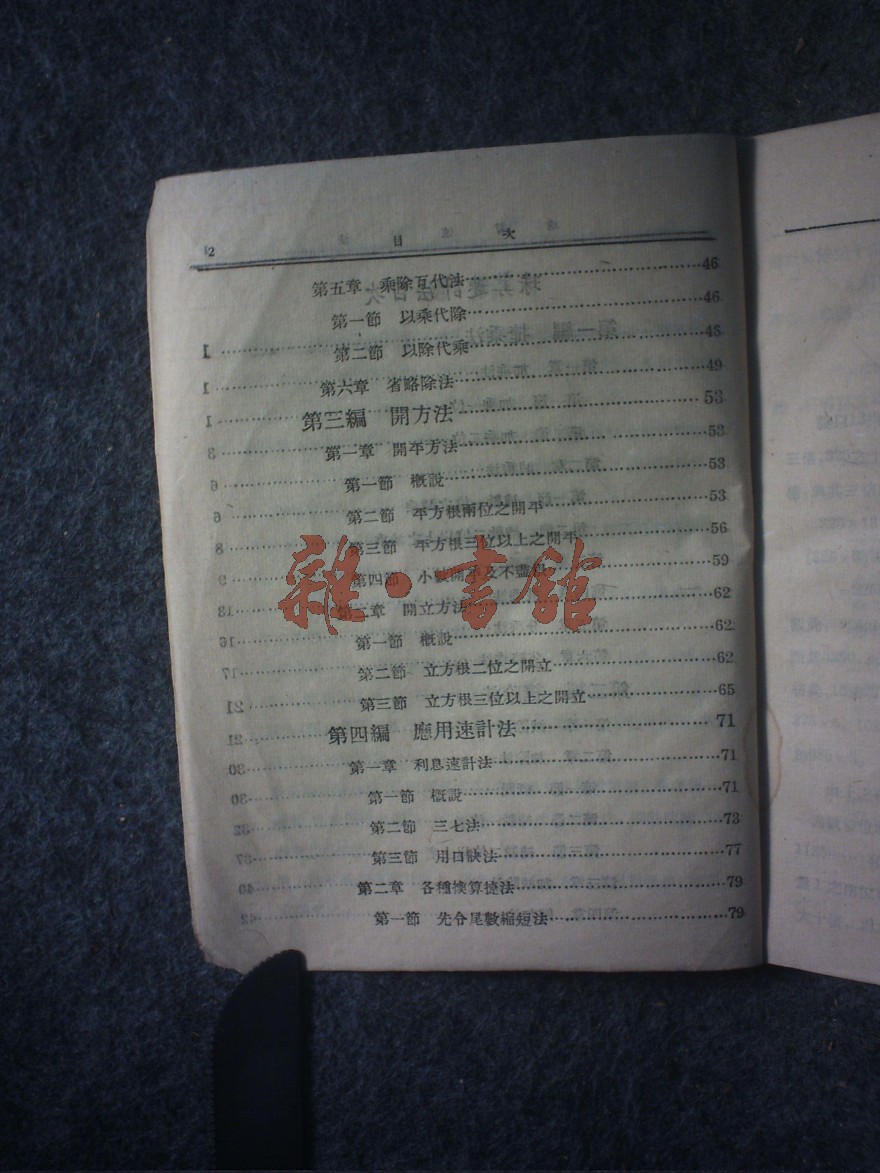 2 目 次
第五章 乘除互代法 46
第一節 以乘代除 46
第二節 以除代乘 48
第六章 省略除法 49
第三編 開方法 53
第一章 開平方法 53
第一節 概說 53
第二節 平方根兩位之開平 53
第三節 平方根三位以上之開平 56
第四節 小數開平及不盡根 59
第二章 開立方法 62
第一節 概說 62
第二節 立方根二位之開立 62
第三節 立方根三位以上之開立 65
第四編 應用速計法 71
第一章 利息速計法 71
第一節 概說 71
第二節 三七法 73
第三節 用口訣法 77
第二章 各種換算捷法 79
第一節 先令尾數縮短法 79
雜·書館